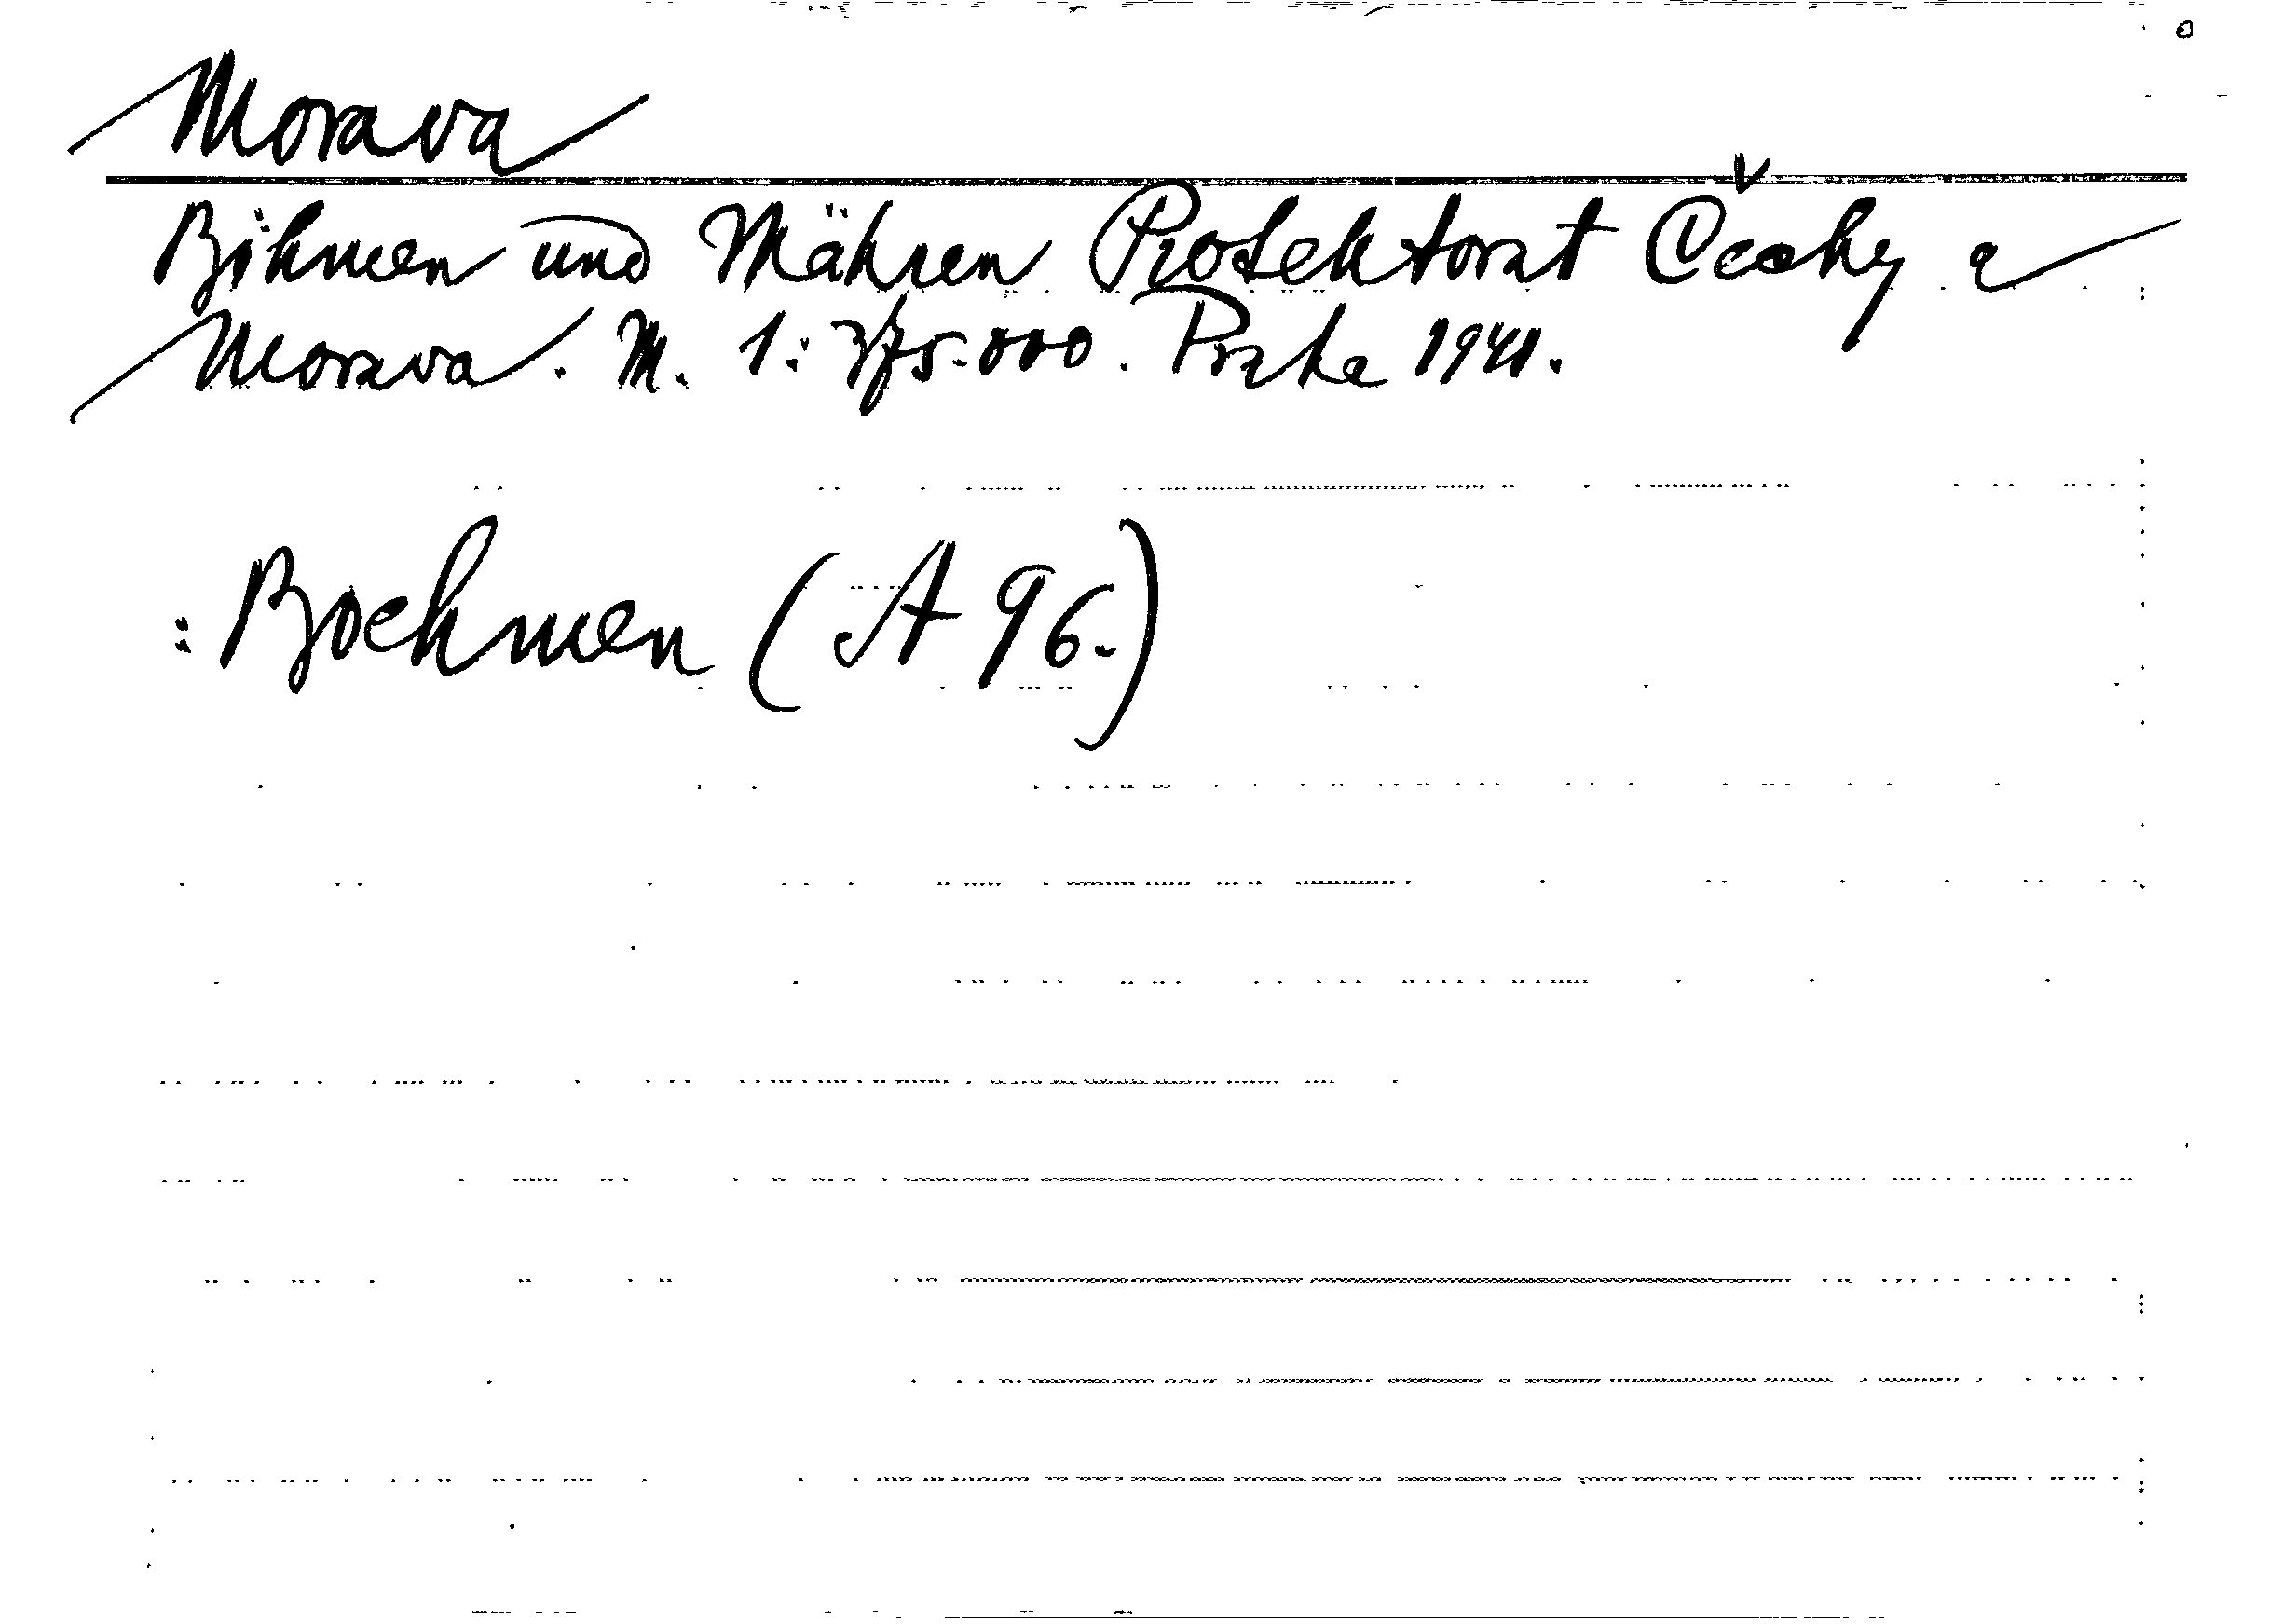 Morava
Böhmen und Mähren Protektorat Čechy a
Morava. M. 1:375.000. Praha 1941.
: Boehmen (A 96.)